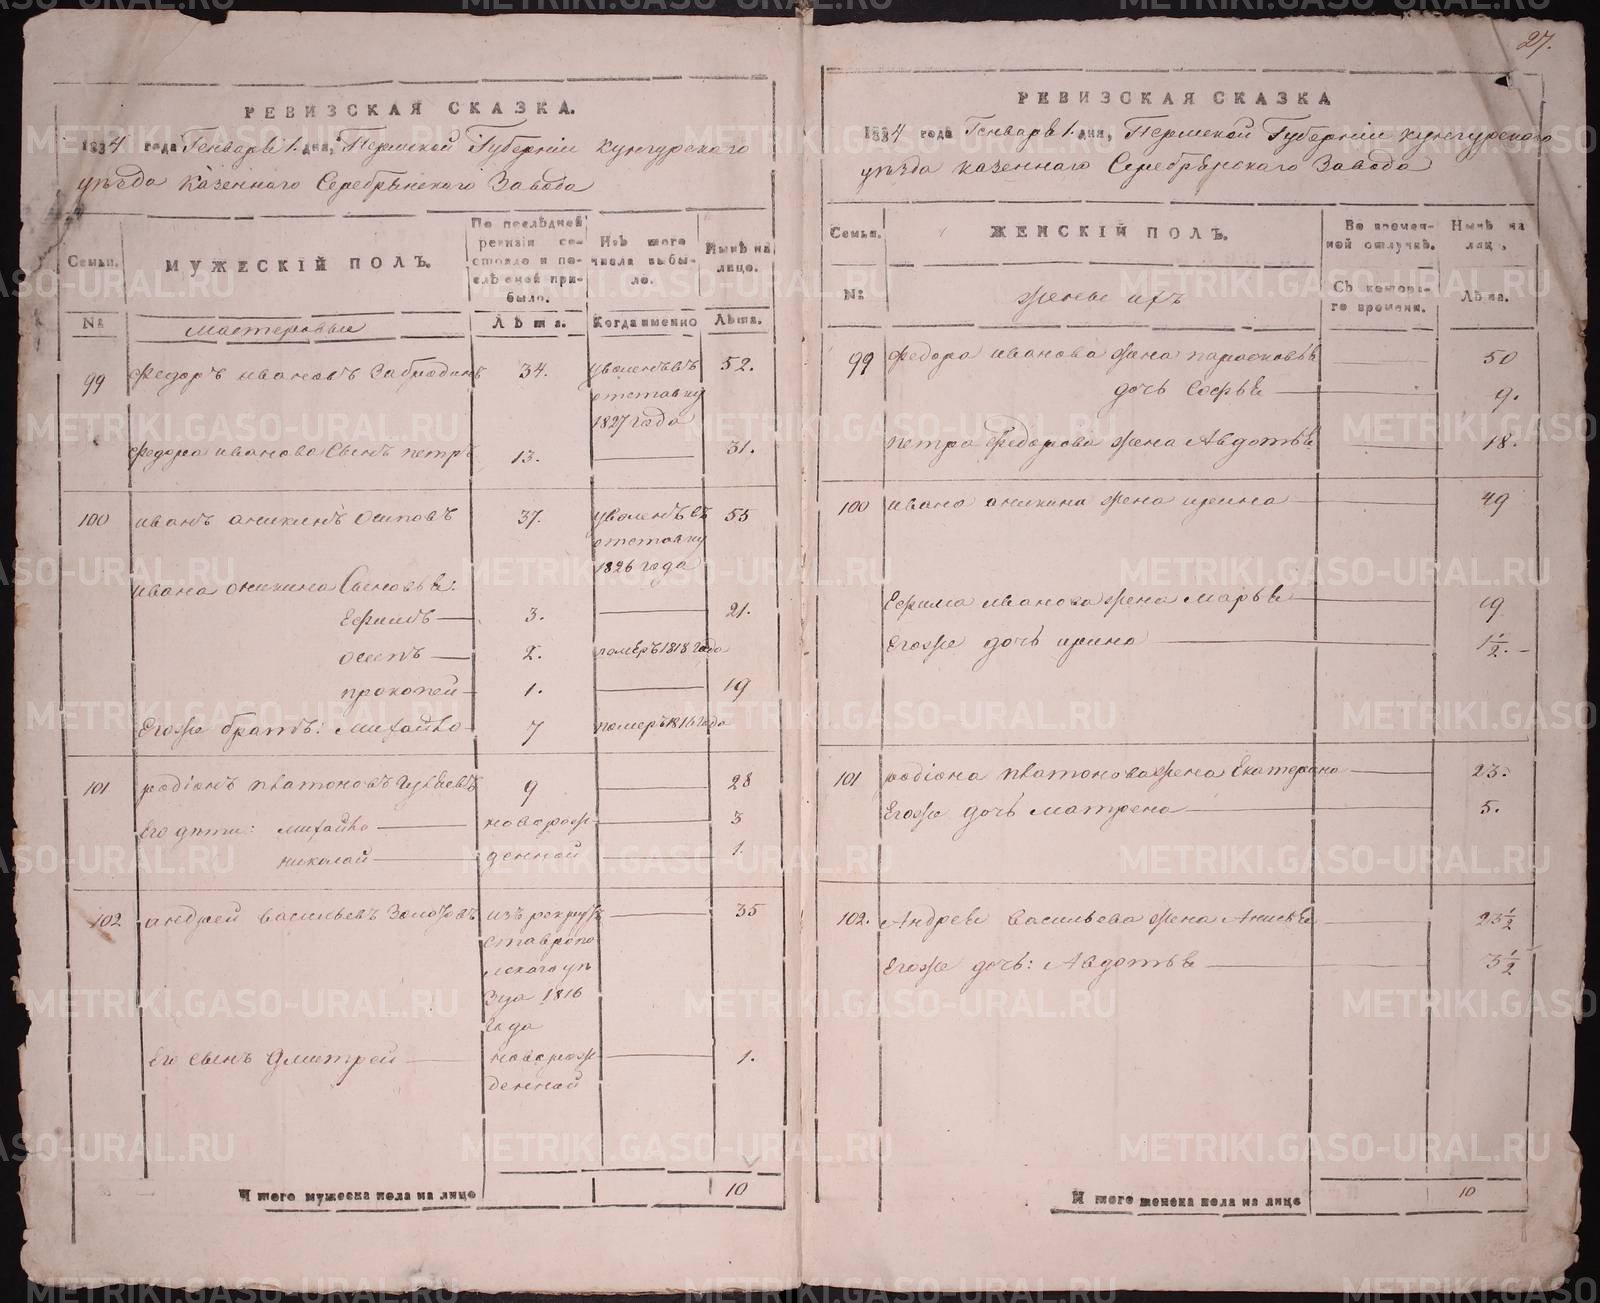 27.
РЕВИЗСКАЯ СКАЗКА.
1834 года Генваря 1. дня, Пермской Губернии Кунгурского
уѣзда казенного Серебрянского Завода
Семьи.
МУЖЕСКІЙ ПОЛЪ.
По послѣдней ревизіи состояло и послѣ оной прибыло.
Изъ того числа выбыло.
Нынѣ на лицо.
№
мастеровые
Лѣта.
Когда именно
Лѣта.
99 Федоръ ивановъ Забродинъ 34. уволенъ въ отставку 1827 года 52.
Федора иванова Сынъ петръ 13. 31.
100 иванъ аникинъ Осиповъ 37. уволенъ въ отставку 1826 года 55
ивана оникина Сыновья:
Ефимъ 3. 21.
осепъ 2. померъ 1818 года
прокопей 1. 19
Егоже братъ: михайло 7 померъ 1816 года
101 родіонъ платоновъ 9 28
Его дѣти: михайло новорож- 3
николай денной 1.
102 андрей васильевъ Золотовъ изъ рекрутъ 35
ставропо
лского уѣ
зда 1816
года
Его сынъ дмитрей новорож 1.
денной
Итого мужеска пола на лицо 10
РЕВИЗСКАЯ СКАЗКА
1834 года Генваря 1. дня, Пермской Губерніи кунгурского
уѣзда казенного Серебрянского Завода
Семьи.
ЖЕНСКІЙ ПОЛЪ.
Во временной отлучкѣ.
Нынѣ на лицо.
№
жены ихъ
Съ которого времени.
Лѣта.
99 Федора иванова жена парасковья 50
дочь Софья 9.
петра Федорова жена Авдотья 18.
100 ивана аникина жена ирина 49
Ефима иванова жена марья 19
Егоже дочь ирина 1 1/2.
101 родіона платонова жена Екатерина 23.
Егоже дочь матрена 5.
102. Андрея васильева жена Анисья 23 1/2
Егоже дочь: Авдотья 3 1/2
Итого женска пола на лицо 10
METRIKI.GASO-URAL.RU